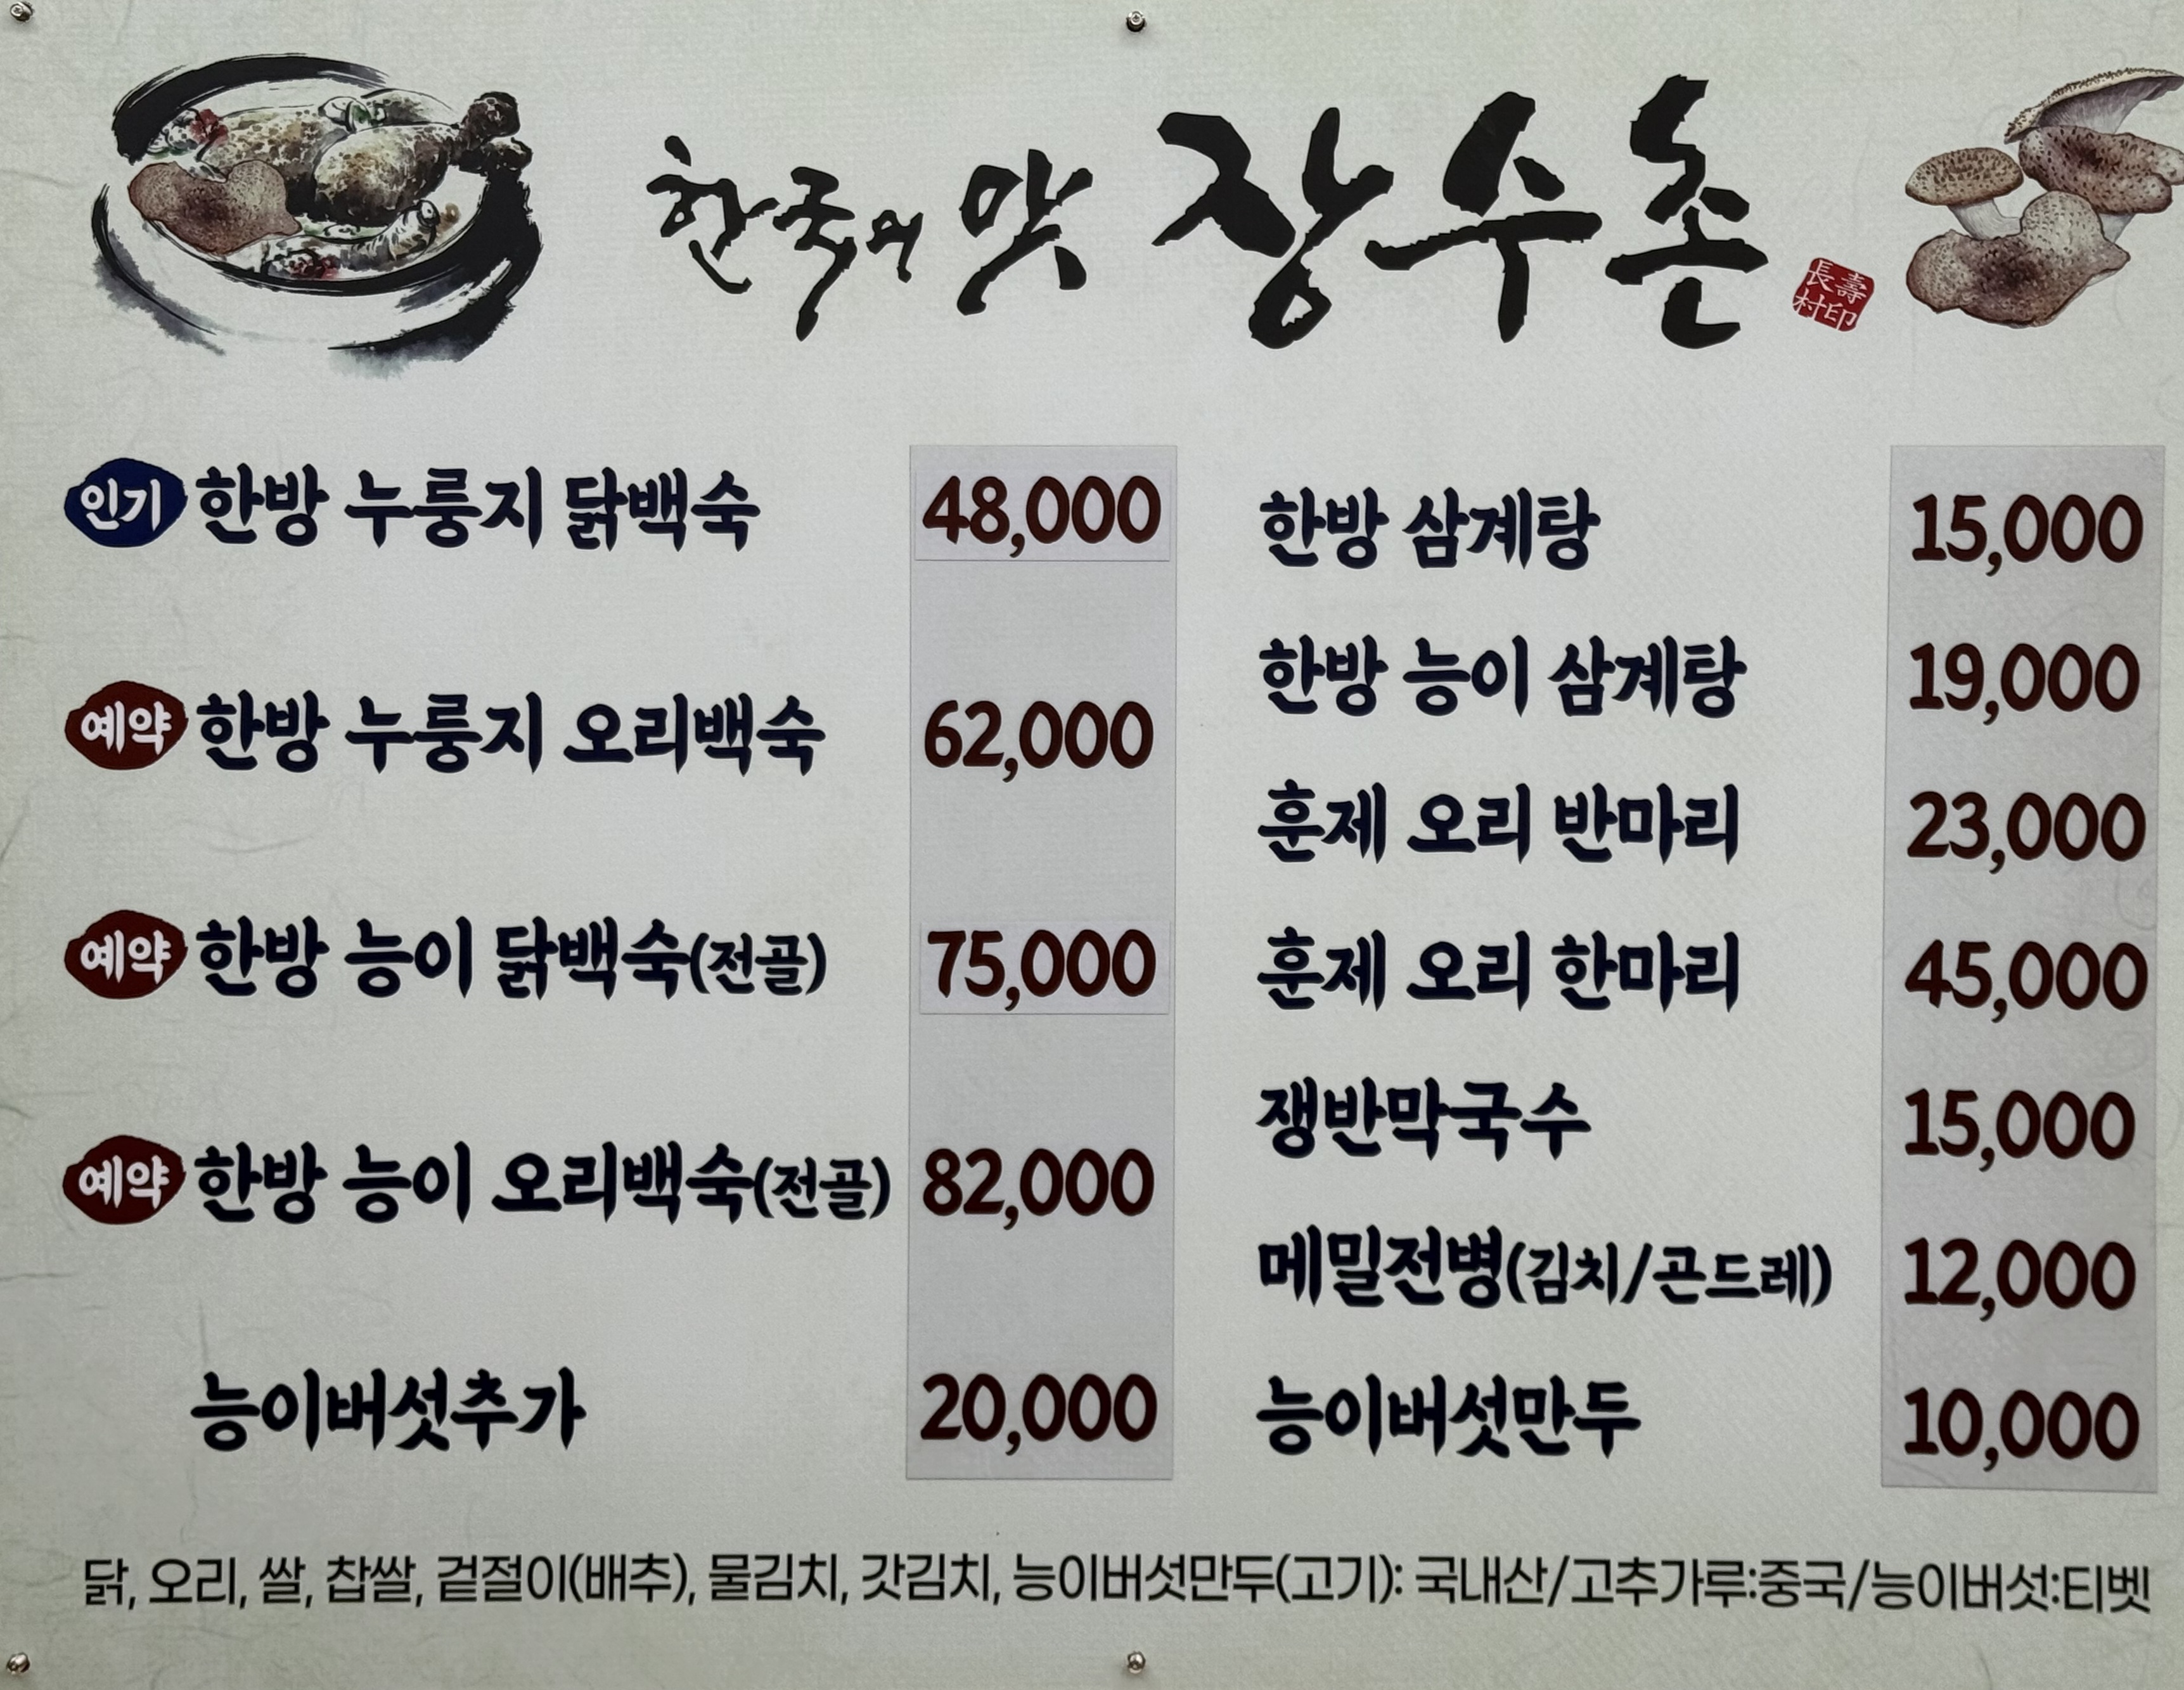 한국의 맛 장수촌
長壽
村印
인기 한방 누룽지 닭백숙 48,000
예약 한방 누룽지 오리백숙 62,000
예약 한방 능이 닭백숙(전골) 75,000
예약 한방 능이 오리백숙(전골) 82,000
능이버섯추가 20,000
한방 삼계탕 15,000
한방 능이 삼계탕 19,000
훈제 오리 반마리 23,000
훈제 오리 한마리 45,000
쟁반막국수 15,000
메밀전병(김치/곤드레) 12,000
능이버섯만두 10,000
닭, 오리, 쌀, 찹쌀, 겉절이(배추), 물김치, 갓김치, 능이버섯만두(고기): 국내산/고추가루:중국/능이버섯:티벳